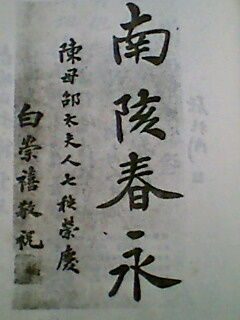 南陔春永
陳母邵太夫人七秩榮慶
白崇禧敬祝